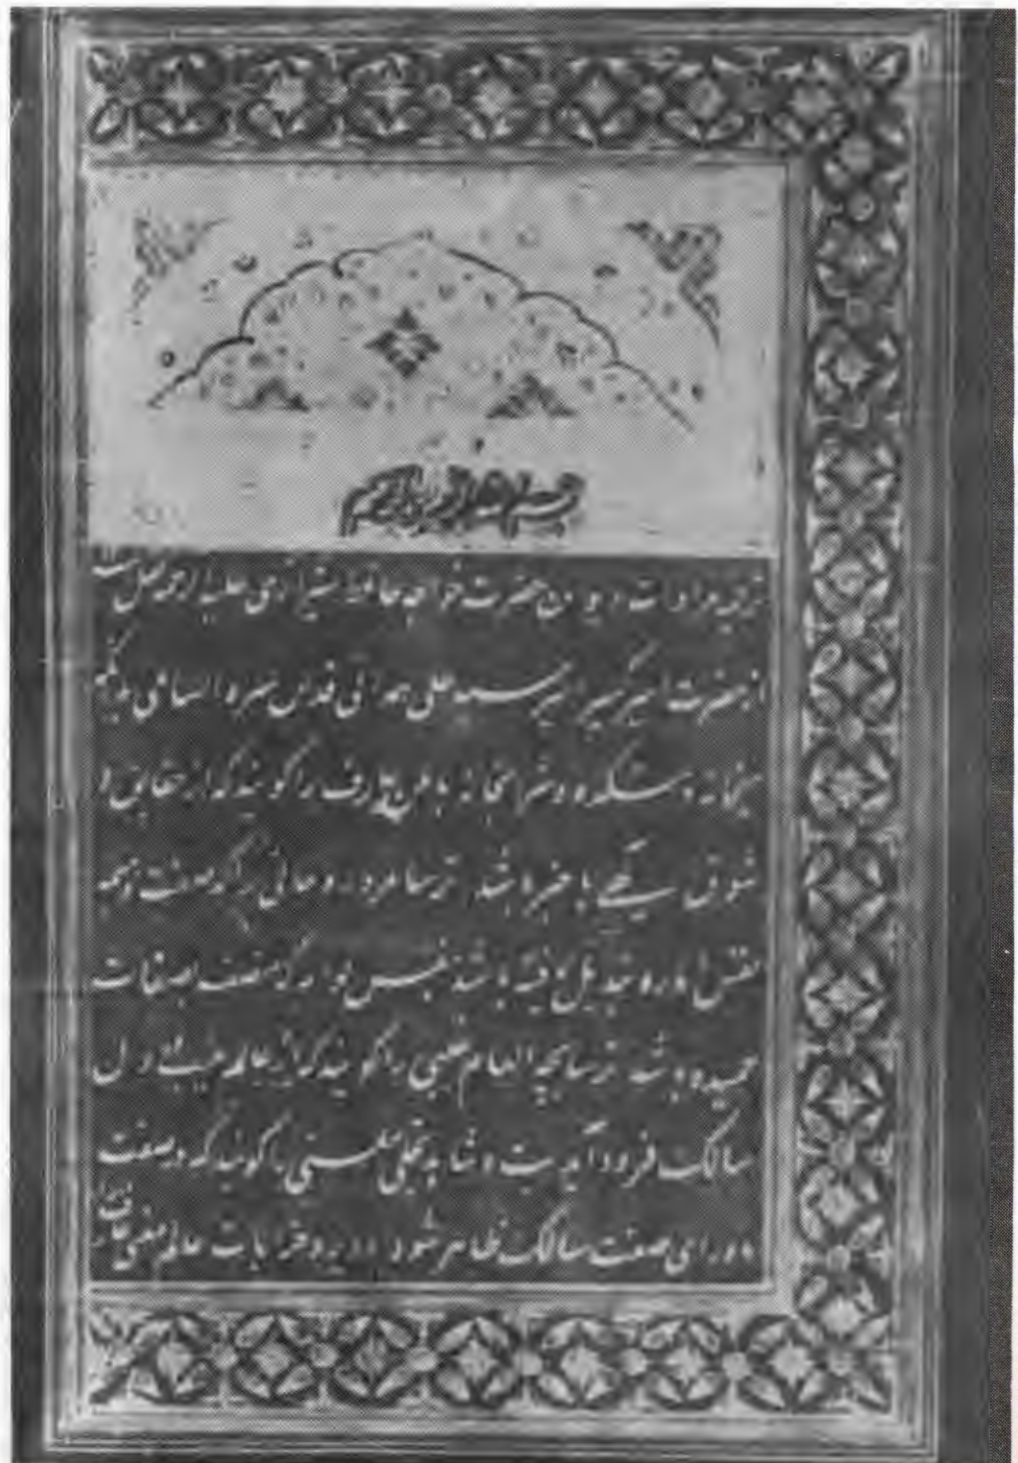 بسم الله الرحمن الرحیم
مرادات دیوان حضرت خواجه حافظ شیرازی علیه الرحمه
از حضرت امیر کبیر میر سید علی همدانی قدس سره السامی
میخانه و بتکده و شرابخانه باطن عارف را گویند که از حقایق و
شوق باخبر باشد ترسا مرد روحانی را که صفت
نفس اماره تبدیل یافته باشد بود که متصف بصفات
حمیده باشد ترسابچه الهام غیبی را گویند که از عالم غیب در دل
سالک فرود آید بت و شاهد تجلی را گویند که در صفت
ماورای صفت سالک ظاهر شود دیر و خرابات عالم معنی